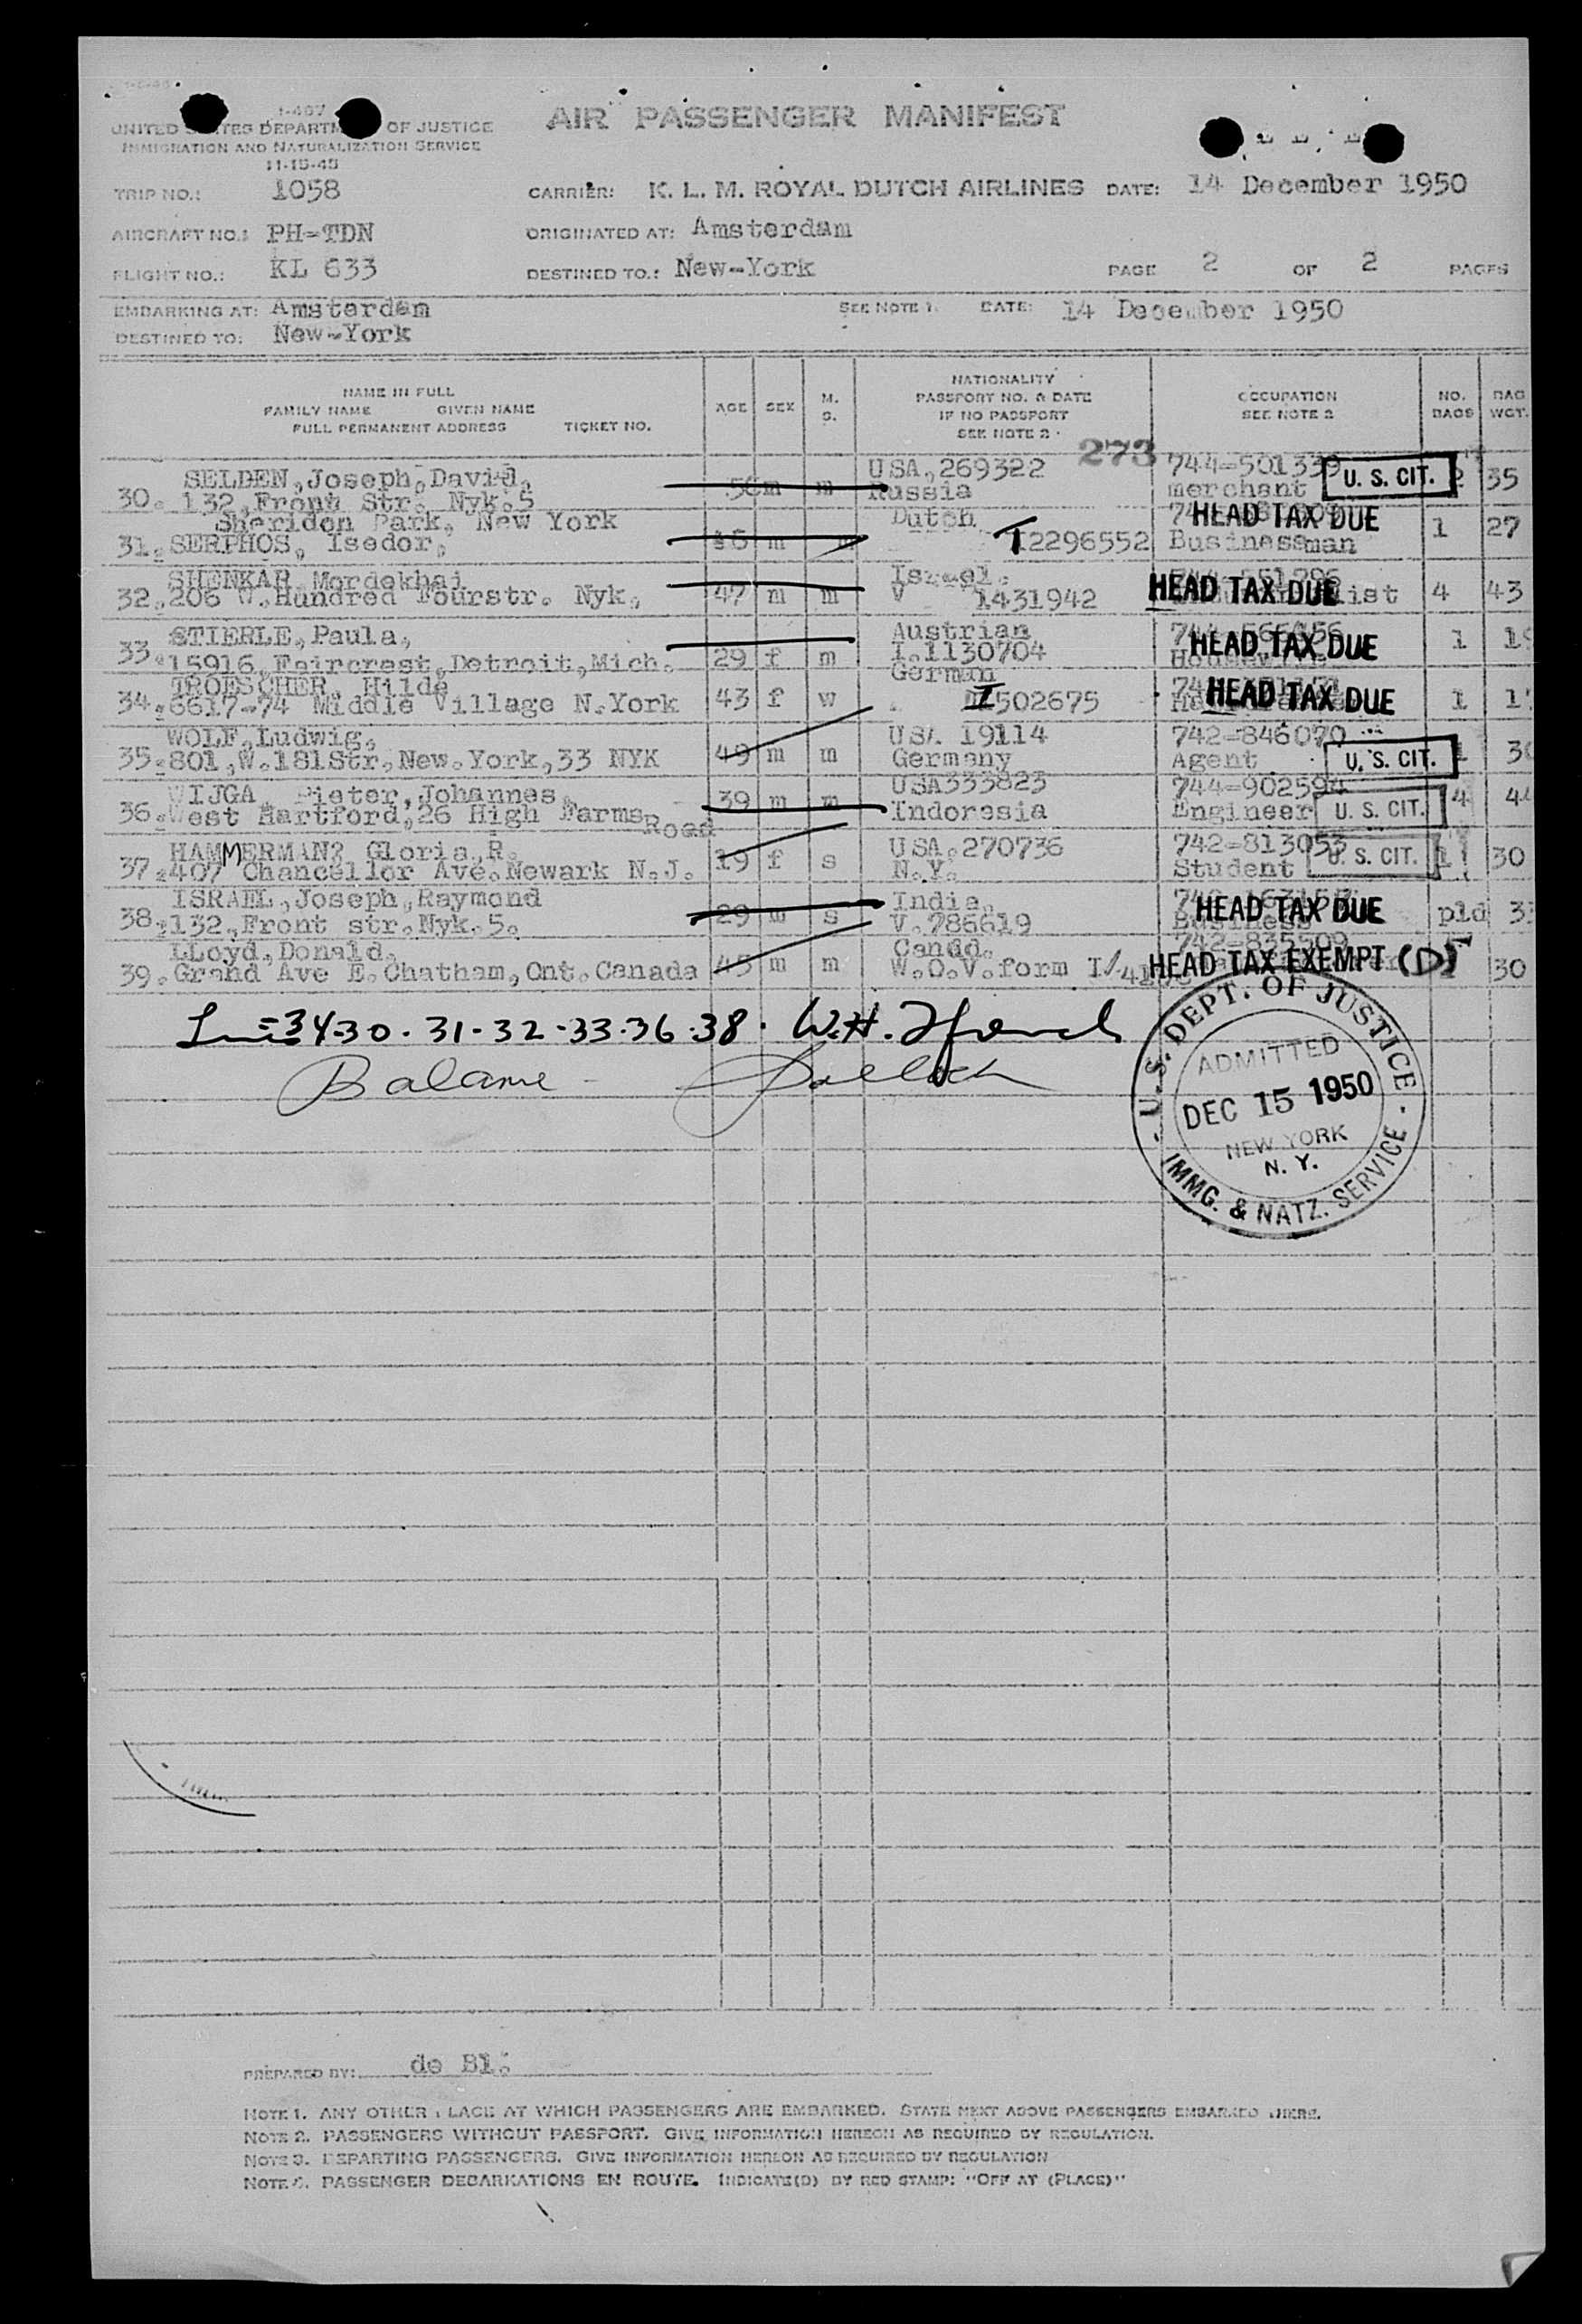 I-467
UNITED STATES DEPARTMENT OF JUSTICE
IMMIGRATION AND NATURALIZATION SERVICE
11-15-45
AIR PASSENGER MANIFEST
TRIP NO.: 1058 CARRIER: K. L. M. ROYAL DUTCH AIRLINES DATE: 14 December 1950
AIRCRAFT NO.: PH-TDN ORIGINATED AT: Amsterdam
FLIGHT NO.: KL 633 DESTINED TO.: New-York PAGE 2 OF 2 PAGES
EMBARKING AT: Amsterdam SEE NOTE 1. DATE: 14 December 1950
DESTINED TO: New-York
NAME IN FULL
FAMILY NAME GIVEN NAME
FULL PERMANENT ADDRESS TICKET NO.
AGE SEX M. S.
NATIONALITY
PASSPORT NO. & DATE
IF NO PASSPORT
SEE NOTE 2
OCCUPATION
SEE NOTE 2
NO. BAGS
BAG WGT.
273
SELDEN,Joseph,David, USA,269322 744-501339
30. 132,Front Str. Nyk.5 m m Russia merchant U. S. CIT. 2 35
Sheridon Park, New York Dutch HEAD TAX DUE
31. SERPHOS, Isedor, m 12296552 Businessman 1 27
SHENKAR Mordekhai Israel.
32. 206 W.Hundred Fourstr. Nyk. 47 m m V 1431942 HEAD TAX DUE 4 43
STIERLE,Paula, Austrian
33. 15916,Faircrest,Detroit,Mich. 29 f m I.1130704 HEAD TAX DUE 1
TROESCHER, Hilde German
34. 6617-74 Middle Village N.York 43 f w I 502675 HEAD TAX DUE 1
WOLF,Ludwig, USA 19114 742-846070
35. 801,W.181Str,New.York,33 NYK 49 m m Germany Agent U. S. CIT. 1
WIJGA Pieter,Johannes, USA333823 744-902594
36. West Hartford,26 High Farms Road 39 m m Indoresia Engineer U. S. CIT. 4
HAMMERMAN Gloria,R. USA.270736 742-813053
37. 407 Chancellor Ave.Newark N.J. 19 f s N.Y. Student U. S. CIT. 1 30
ISRAEL,Joseph,Raymond India,
38. 132,Front str.Nyk.5. 29 m s V.786619 Business HEAD TAX DUE pld
LLoyd,Donald. Canad. 742-835509
39. Grand Ave E.Chatham,Ont.Canada 45 m m W.O.V.form I/ HEAD TAX EXEMPT (D) 30
34-30-31-32-33-36-38. W.H.
Balame
U. S. DEPT. OF JUSTICE
ADMITTED
DEC 15 1950
NEW YORK
N. Y.
IMMG. & NATZ. SERVICE
PREPARED BY: de Bl.
NOTE 1. ANY OTHER PLACE AT WHICH PASSENGERS ARE EMBARKED. STATE NEXT ABOVE PASSENGERS EMBARKED THERE.
NOTE 2. PASSENGERS WITHOUT PASSPORT. GIVE INFORMATION HEREON AS REQUIRED BY REGULATION.
NOTE 3. DEPARTING PASSENGERS. GIVE INFORMATION HEREON AS REQUIRED BY REGULATION
NOTE 4. PASSENGER DEBARKATIONS EN ROUTE. INDICATE(D) BY RED STAMP: "OFF AT (PLACE)"